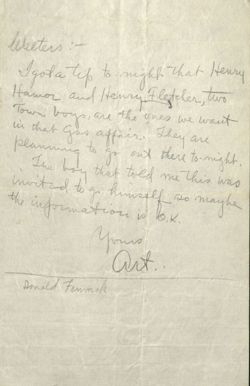 Wieters :-
I got a tip to-night that Henry
Hamor and Henry Fletcher, two
Town boys, are the ones we want
in that Gas affair. They are
planning to go out there to-night.
The boy that told me this was
invited to go himself so maybe
the information is O.K.
Yours
Art.
Donald